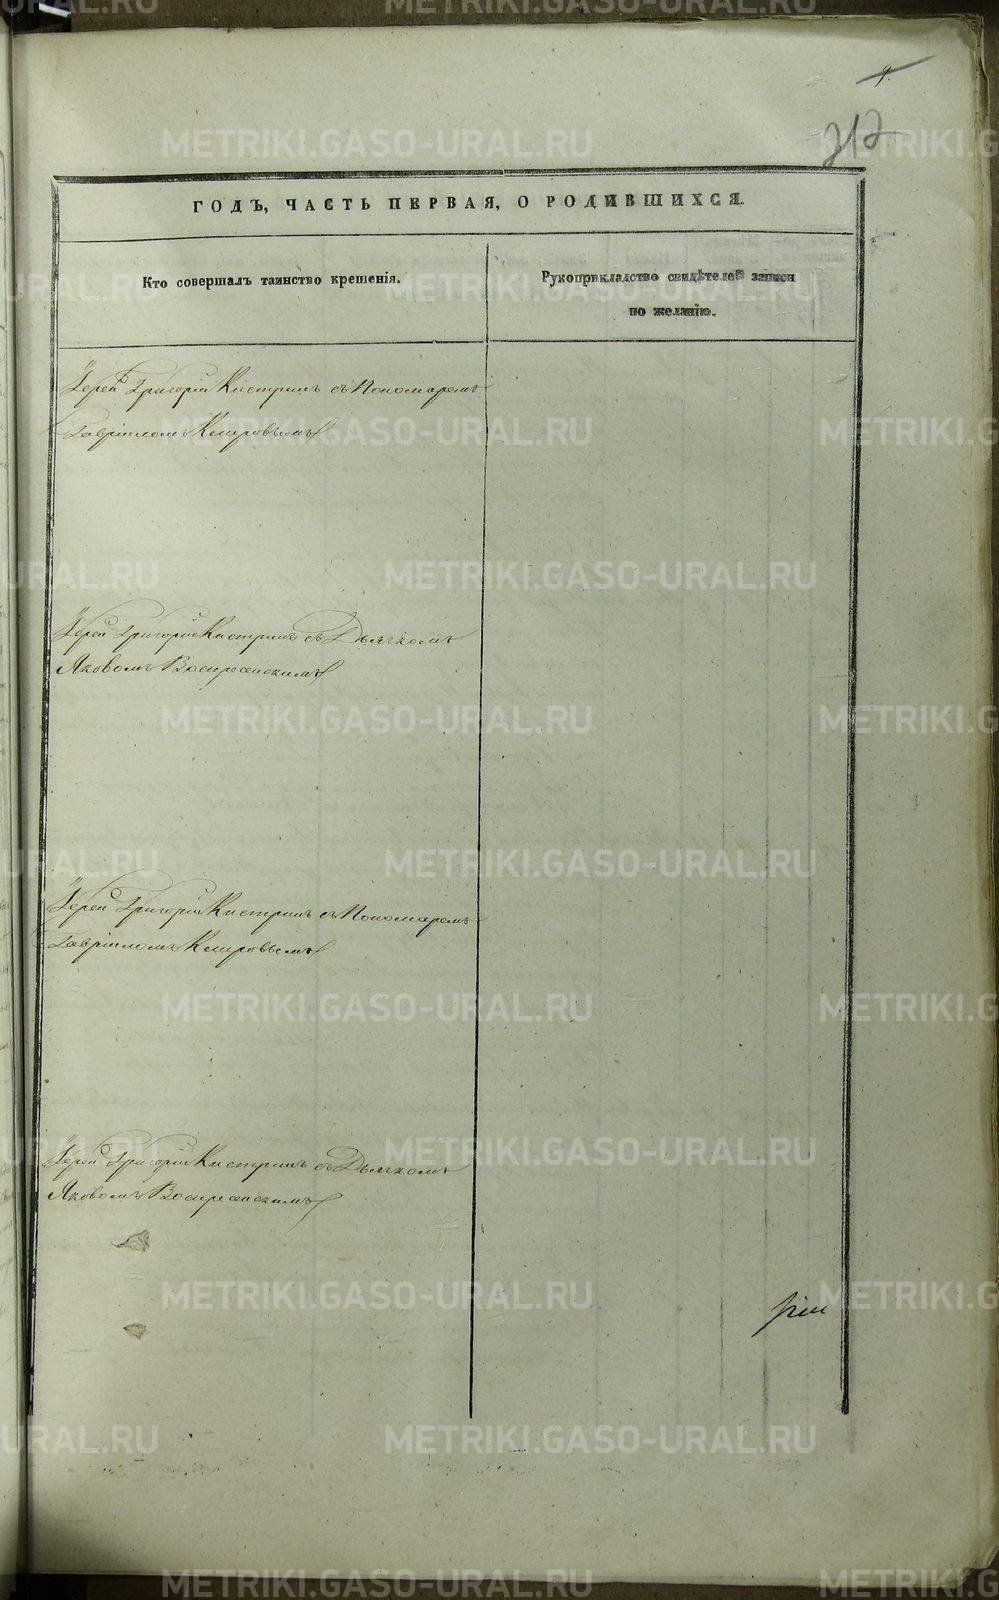 9.
212
ГОДЪ, ЧАСТЬ ПЕРВАЯ, О РОДИВШИХСЯ.
Кто совершалъ таинство крещенія.
Рукоприкладство свидѣтелей записи
по желанію.
Іерей Григорій Кистринъ съ Пономаремъ
Гавріиломъ
Іерей Григорій Кистринъ съ Дьячкомъ
Яковомъ Воскресенскимъ
Іерей Григорій Кистринъ съ Пономаремъ
Гавріиломъ
Іерей Григорій Кистринъ съ Дьячкомъ
Яковомъ Воскресенскимъ
METRIKI.GASO-URAL.RU